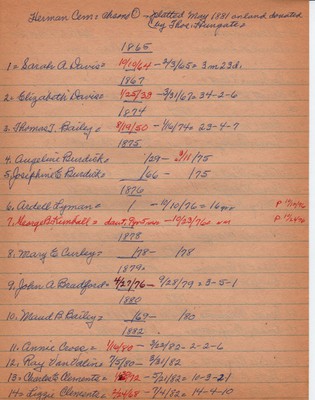 Herman Cem: - platted May 1881 on land donated
by Thos. Hungate
1865
1 = Sarah A. Davis = 10/10/64 - 2/3/65 = 3m 23d.
1867
2 = Elizabeth Davis = 1/25/33 - 3/31/67 = 34-2-6
1874
3. Thomas T. Bailey = 8/19/50 - 1/16/74 = 23-4-7
1875
4. Angeline Burdick = /29 - 3/11/75
5. Josephine E. Burdick = /66 - /75
1876
6. Ardell Lyman = 1 - 10/10/76 = 16
7. George B. Kimball = - 10/23/76 =
1878
8. Mary E. Curley = /78 - /78
1879
9. John A. Bradford = 4/27/76 - 9/28/79 = 3-5-1
1880
10. Maud B. Bailey = /69 - /80
1882
11. Annie Cross = 1/16/80 - 3/22/82 = 2-2-6
12. Ray Van = 7/5/80 - 3/21/82
13 = Charles Clements = /72 - 5/21/82 = 10-3-21
14 = Lizzie Clements = 2/24/68 - 7/4/82 = 14-4-10